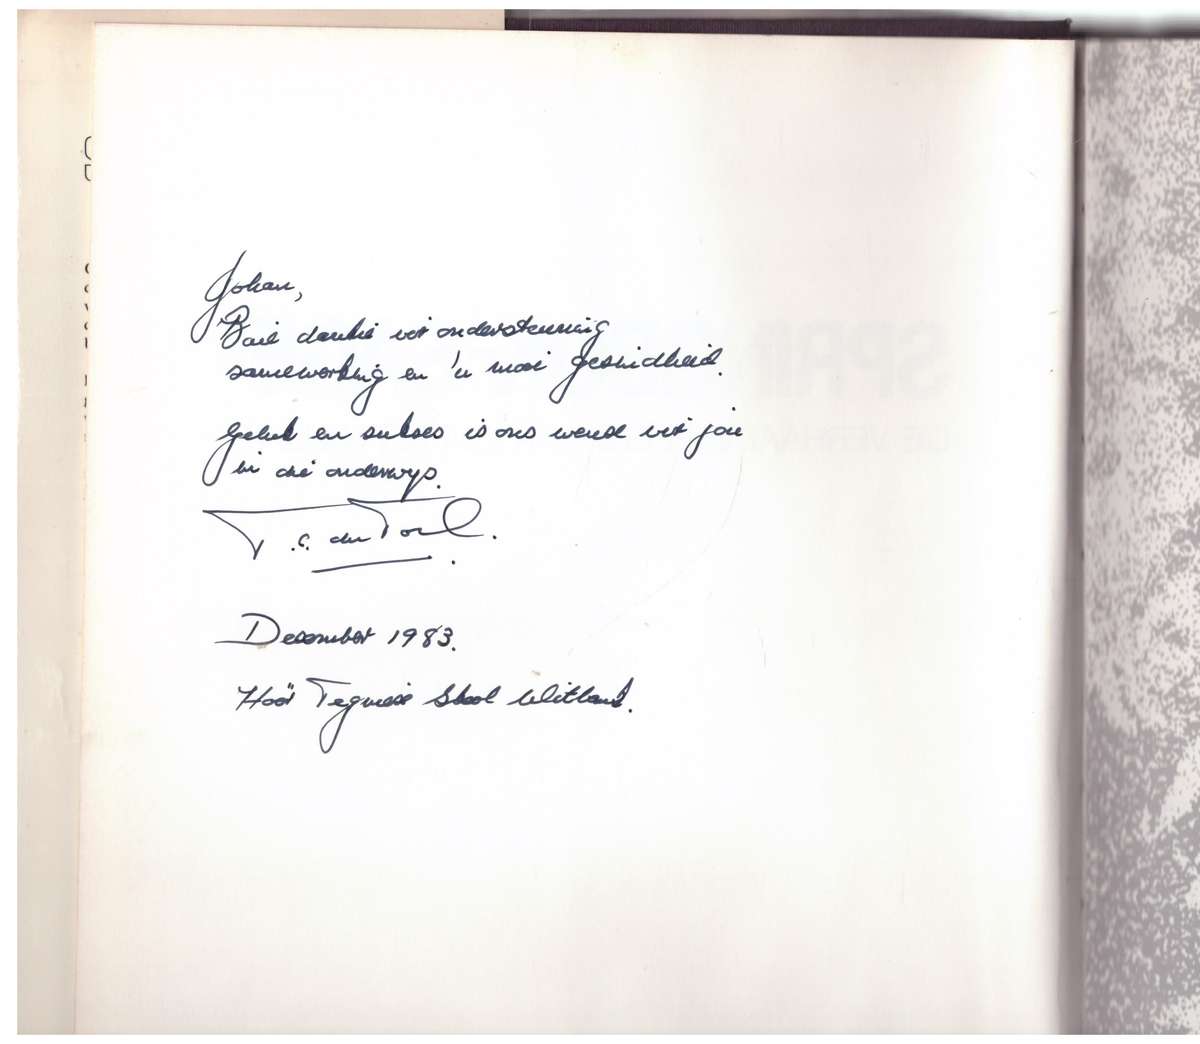 Johan,
Baie dankie vir ondersteuning
samewerking en 'n mooi gesindheid.
Geluk en sukses is ons wense vir jou
in die onderwys.
T.C. du Toit.
Desember 1983.
Hoër Tegniese Skool Witbank.